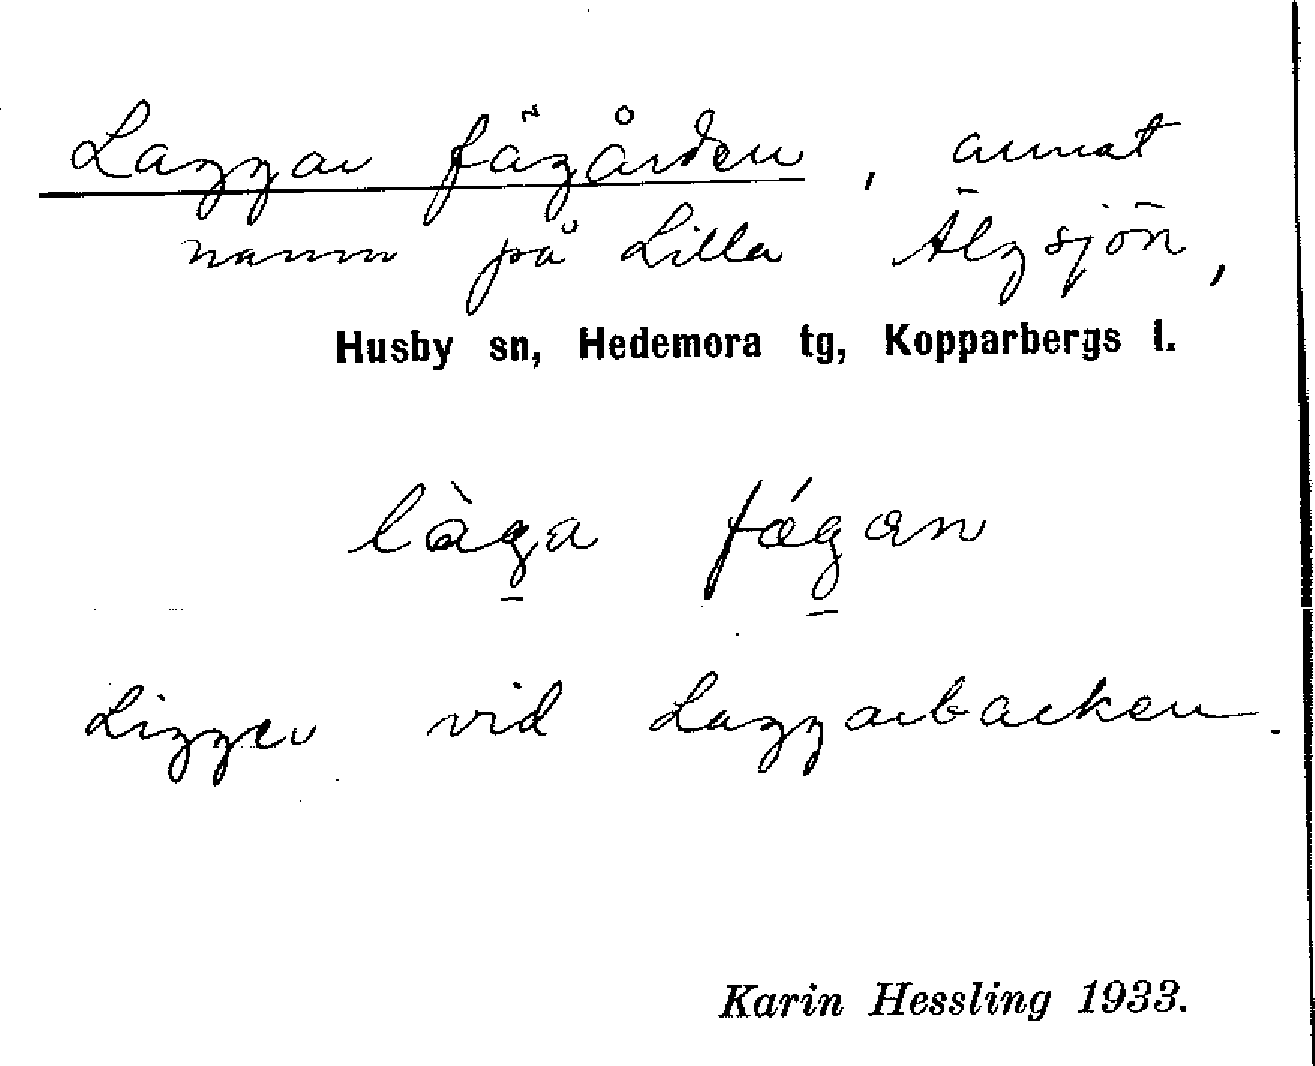 Laggar fägården, annat
namn på Lilla Älgsjön,
Husby sn, Hedemora tg, Kopparbergs l.
làga fǽgan
Ligger vid Laggarbacken.
Karin Hessling 1933.